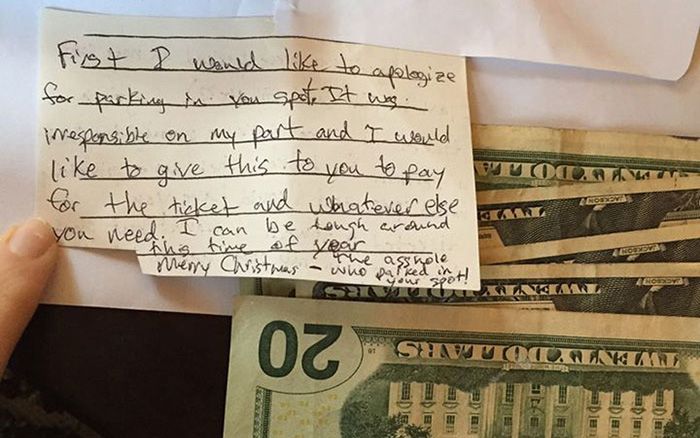 First I would like to apologize
for parking in you spot, It was
irresponsible on my part and I would
like to give this to you to pay
for the ticket and whatever else
you need. I can be tough around
this time of year
Merry Christmas - The asshole
who parked in
your spot!
TWENTY DOLLARS
JACKSON
JACKSON
JACKSON
TWENTY DOLLARS
20
TWENTY DOLLARS